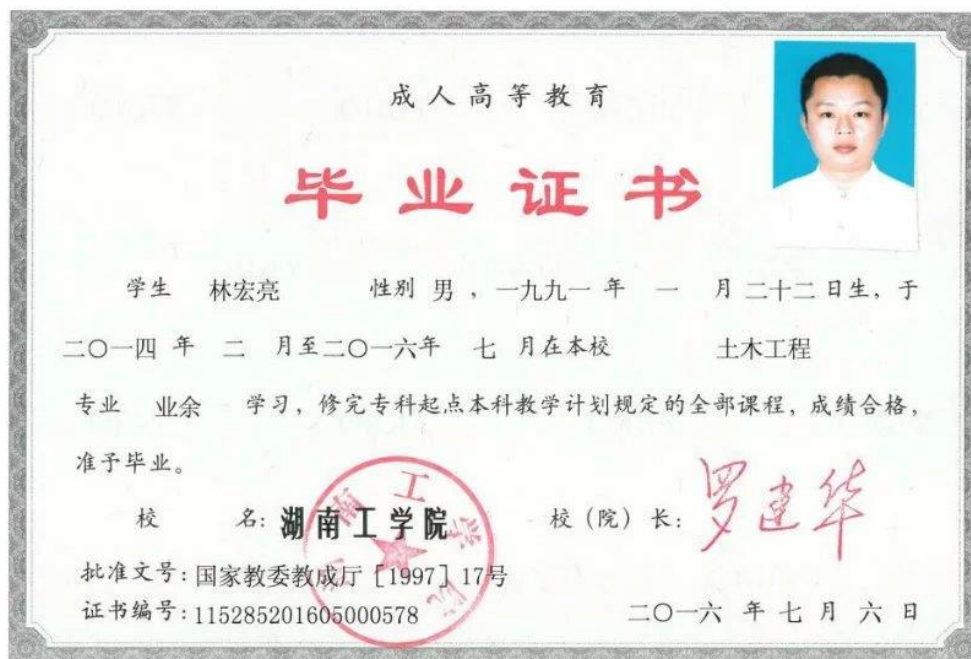 成人高等教育
毕业证书
学生 林宏亮 性别 男 ，一九九一 年 一 月 二十二 日生，于
二〇一四 年 二 月至二〇一六年 七 月在本校 土木工程
专业 业余 学习，修完专科起点本科教学计划规定的全部课程，成绩合格，
准予毕业。
校 名：湖南工学院 校（院）长：罗建华
湖南工学院
批准文号：国家教委教成厅［1997］17号
证书编号：115285201605000578 二〇一六 年 七 月 六 日